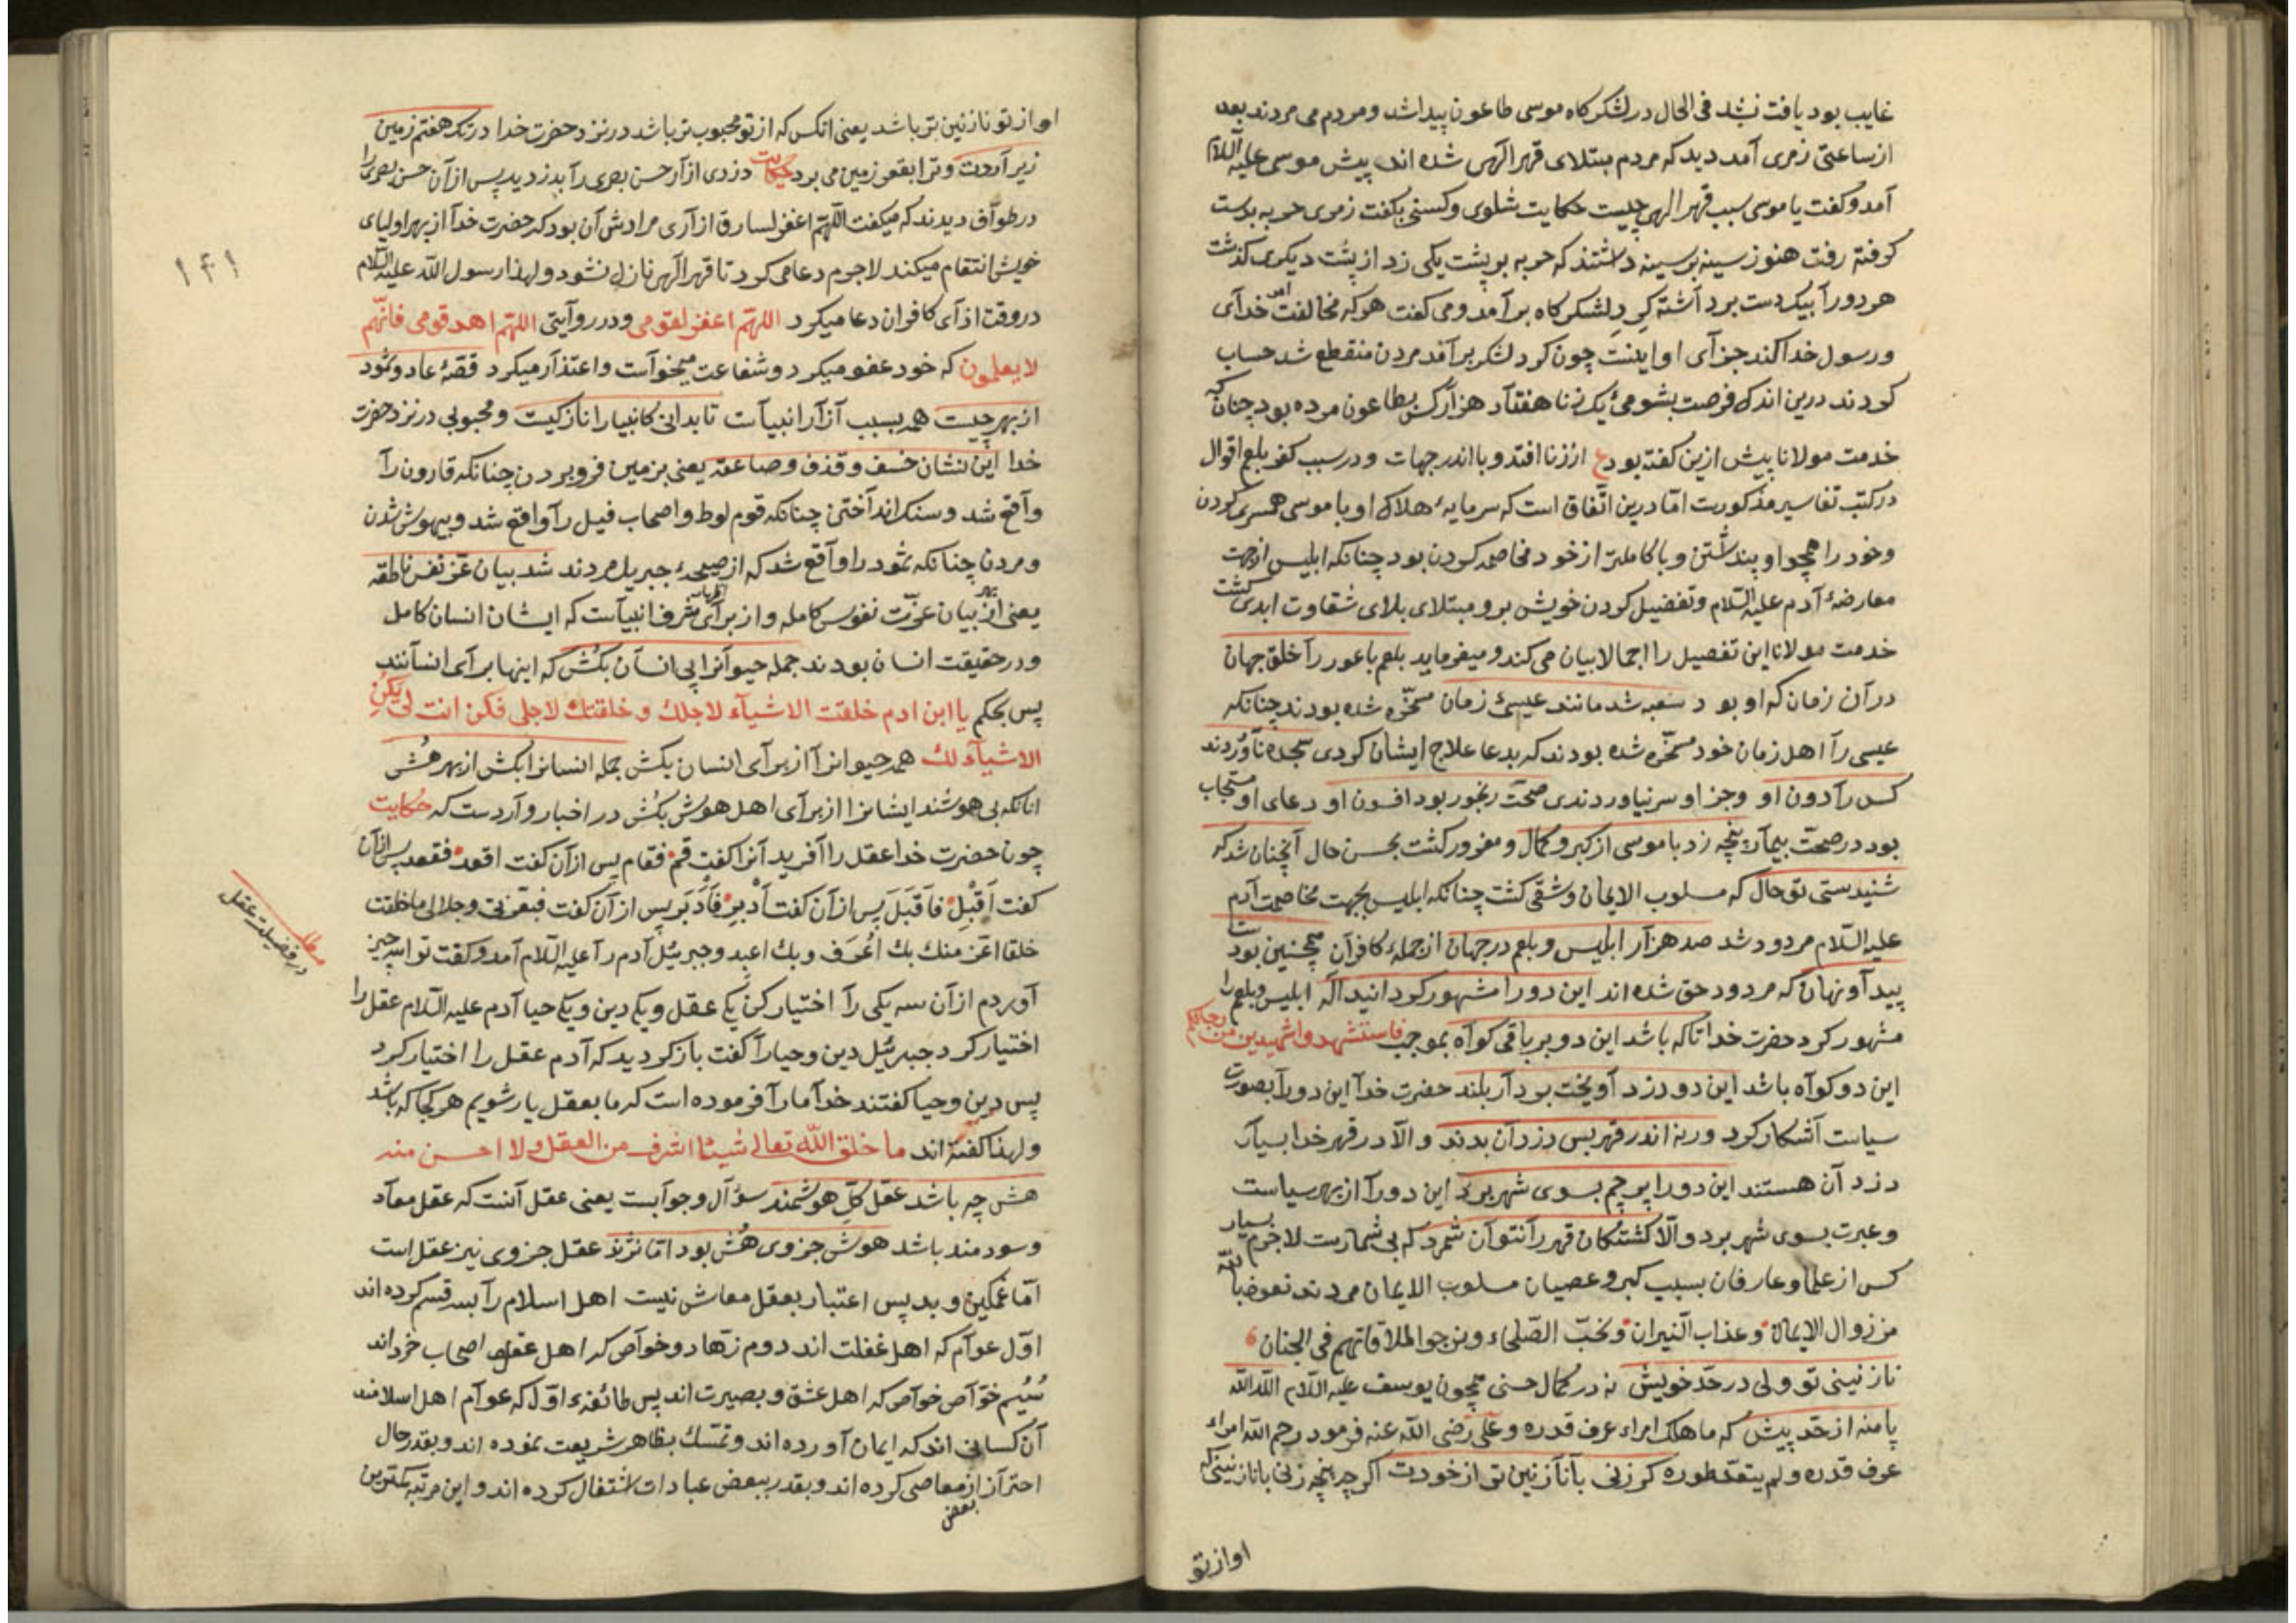 غایب بود یافت نشد فی الحال در لشکرکاه موسی طاعون پیدا شد و مردم می مردند بعد
از ساعتی زمری آمد دید که مردم مبتلای قهر الهی شده اند پیش موسی علیه السلام
آمد و کفت یا موسی سبب قهر الهی چیست حکایت شلوی و کسنی بکفت زمری حربه بدست
کرفته رفت هنوز سینه بر سینه داشتند که حربه بر پشت یکی زد از پشت دیکری کذشت
هر دو را بیکدست برداشته کرد لشکرکاه برآمد و می کفت هر که مخالفت امر خدای
و رسول خدا کند جزآی او اینست چون کرد لشکر برآمد مردن منقطع شد حساب
کردند درین اندک فرصت بشومیء یک زنا هفتآد هزآر کس بطاعون مرده بود چنانکه
خدمت مولانا پیش ازین کفته بود ع از زنا افتد وبا اندر جهات و در سبب کفر بلعم اقوال
در کتب تفاسیر مذکورست امّا درین اتّفاق است که سرمایهٔ هلاک او با موسی همسری کردن
و خود را همچو او پنداشتن و با کاملتر از خود مخاصمه کردن بود چنانکه ابلیس از جهت
معارضهٔ آدم علیه السّلام و تفضیل کردن خویش برو مبتلای بلای شقاوت ابدی کشت
خدمت مولانا این تفصیل را اجمالا بیان می کند و میفرماید بلعم باعور رآ خلق جهان
در آن زمان که او بود سغبه شد مانند عیسیٔ زمان مسخّره شده بودند چنانکه
عیسی رآ اهل زمان خود مسخّره شده بودند که بدعا علاج ایشان کردی سجده ناوردند
کس رآ دون او و جز او سر نیاوردندی صحّت رنجور بود افسون او دعای او مستجاب
بود در صحّت بیمآر پنجه زد با موسی از کبر و کمال و مغرور کشت بحسن حال آنچنان شد که
شنیدستی تو حال که مسلوب الایمان و شقی کشت چنانکه ابلیس بجهت مخاصمت آدم
علیه السّلام مردود شد صد هزآر ابلیس و بلعم در جهان از جملهء کافرآن همچنین بودست
پیدآ و نهان که مردود حق شده اند این دو را مشهور کردانید اله ابلیس و بلعم را
مشهور کرد حضرت خدا تا که باشد این دو بر باقی کوآه بموجب فاستشهدوا شهیدین من رجالکم
این دو کوآه باشد این دو دزد آویخت بر دآر بلند حضرت خدآ این دو رآ بصورت
سیاست آشکار کرد ورنه اندر قهر بس دزدآن بدند و الّا در قهر خدا بسیآر
دزدآن هستند این دو را پرچم بسوی شهر برد این دو رآ از بهر سیاست
و عبرت بسوی شهر برد و الّا کشتکان قهر رآ نتوآن شمرد که بی شمارست لاجرم بسیار
کس از علما و عارفان بسبب کبر و عصیان مسلوب الایمان مردند نعوذ بالله
من زوال الایمان وعذاب النیران ونحبّ الصّلحاء ونرجوا لملاقاتهم فی الجنان
نازنینی تو ولی در حدّ خویش نه در کمال حسنی همچون یوسف علیه السّلام الله الله
پا منه از حدّ پیش که ما هلک امراء عرف قدره و علی رضی الله عنه فرمود رحم الله امراء
عرف قدره ولم یتعدّ طوره کر زنی بآ نآزنین تر از خودت اکر چه پنجه زنی با نازنینی که
او از تو
او از تو نازنین تر باشد یعنی انکس که از تو محبوب تر باشد در نزد حضرت خدا در تک هفتم زمین
زیر آردت و ترا بقعر زمین می برد حکایت دزدی ازآر حسن بصری رآ بدزدید پس از آن حسن بصری را
در طوآف دیدند که میکفت اللّهمّ اغفر لسارق ازآری مرادش آن بود که حضرت خدآ از بهر اولیای
خویش انتقام میکند لاجرم دعا می کرد تا قهر الهی نازل نشود و لهذا رسول الله علیه السّلام
در وقت اذآی کافران دعا میکرد اللهمّ اغفر لقومی و در روآیتی اللهمّ اهد قومی فانّهم
لا یعلمون که خود عفو میکرد و شفاعت میخوآست و اعتذآر میکرد قصّهٔ عاد و ثمود
از بهر چیست همه بسبب آزآر انبیآست تا بدانی کانبیا را نازکیست و محبوبی در نزد حضرت
خدا این نشان خسف و قذف و صاعقه یعنی بزمین فرو بردن چنانکه قارون رآ
وآقع شد و سنک اندآختن چنانکه قوم لوط و اصحاب فیل رآ واقع شد و بیهوش شدن
و مردن چنانکه ثمود را وآقع شد که از صیحهٔ جبریل مردند شد بیان عزّ نفس ناطقه
یعنی از بهر بیان عزّت نفوس کامله و از برآی اظهار شرف انبیآست که ایشان انسان کامل
و در حقیقت انسان بودند جمله حیوآنرا پی انسآن بکش که اینها برآی انسآنند
پس بحکم یا ابن ادم خلقت الاشیآء لاجلک و خلقتک لاجلی فکن انت لی یکن
الاشیآء لک همه حیوانرآ از برآی انسان بکش جمله انسانرا بکش از بهر هُش
انانکه بی هوشند ایشانرا از برآی اهل هوش بکش در اخبار وآردست که حکایت
چون حضرت خدا عقل را آفرید آنرا کفت قم فقام پس از آن کفت اقعد فقعد پس از آن
کفت اَقبِل فاَقبَلَ پس از آن کفت اَدبِر فاَدبَر پس از آن کفت فبعزّتی و جلالی ما خلقت
خلقا اعزّ منک بک اُعرَف و بک اعبد و جبرئیل آدم رآ علیه السّلام آمد و کفت ترا سه چیز
آوردم از آن سه یکی رآ اختیار کن یکی عقل و یکی دین و یکی حیا آدم علیه السّلام عقل را
اختیار کرد جبرئیل دین و حیا رآ کفت باز کردید که آدم عقل را اختیار کرد
پس دین و حیا کفتند خدآ ما رآ فرموده است که ما بعقل یار شویم هر کجا که باشد
و لهذا کفته اند ما خلق الله تعالی شیئا اشرف من العقل ولا احسن منه
هش چه باشد عقل کلّ هوشمند سؤآل و جوآبست یعنی عقل آنست که عقل معآد
و سودمند باشد هوش جزوی هُش بود امّا نژند عقل جزوی نیز عقل است
امّا غمکین و بد پس اعتبار بعقل معاش نیست اهل اسلام رآ بسه قسم کرده اند
اوّل عوآم که اهل غفلت اند دوم زهّاد و خوآص که اهل عقل و اصحاب خرد اند
سیُم خوّآص خوآص که اهل عشق و بصیرت اند پس طائفهء اوّل که عوآم اهل اسلامند
آن کسانی اند که ایمان آورده اند و تمسّک بظاهر شریعت نموده اند و بقدر حال
احترآز از بعض معاصی کرده اند و بقدر ببعض عبادات اشتغال کرده اند و این مرتبه کمترین
۱۴۱
مطلب
در فضیلت عقل